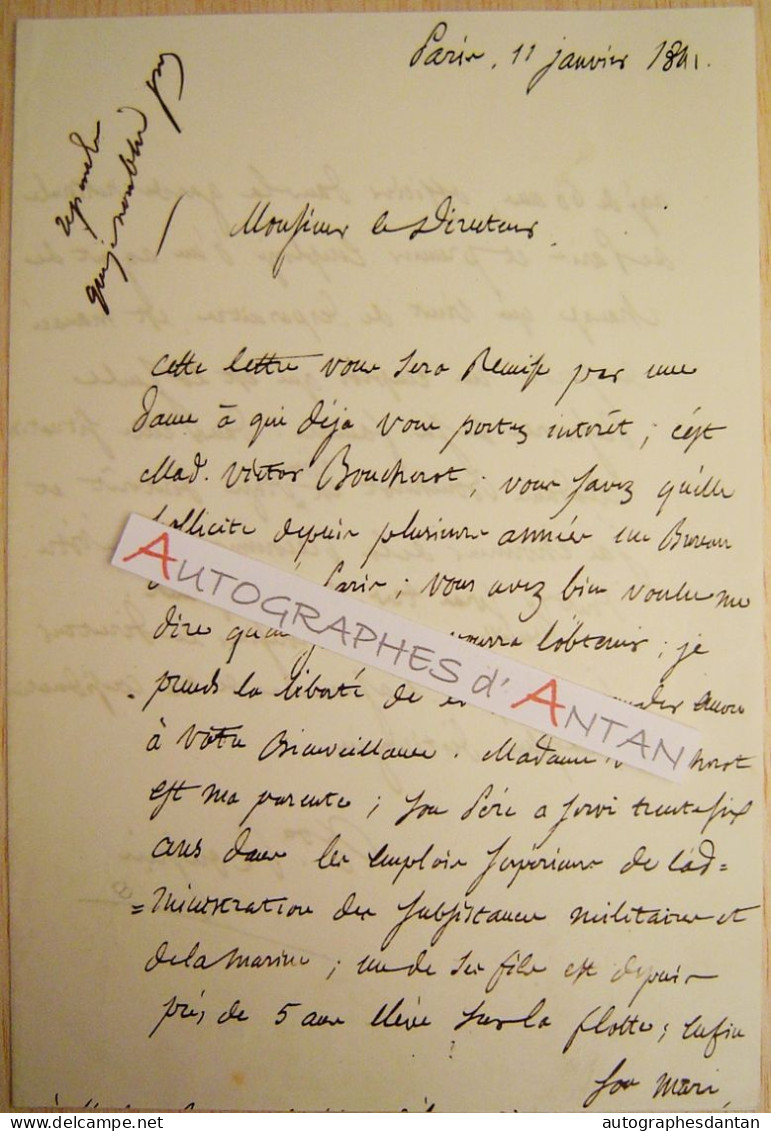 Paris, 11 janvier 1841.
Monsieur le Directeur,
Cette lettre vous sera Remise par une
Dame à qui déja vous portez intérêt ; c'est
Mad. Victor Boucherot ; vous savez qu'elle
sollicite depuis plusieurs année un Bureau
Paris ; vous avez bien voulu me
dire qu'en pourra l'obtenir ; je
prends la liberté de encore
à votre Bienveillance. Madame
est ma parente ; son Père a servi trente six
ans dans les emplois supérieurs de l'ad=
=ministration des subsistances militaires et
de la marine ; un de ses fils est depuis
près de 5 ans élève sur la flotte ; enfin
son mari,
AUTOGRAPHES d'ANTAN
delcampe.net
autographesdantan